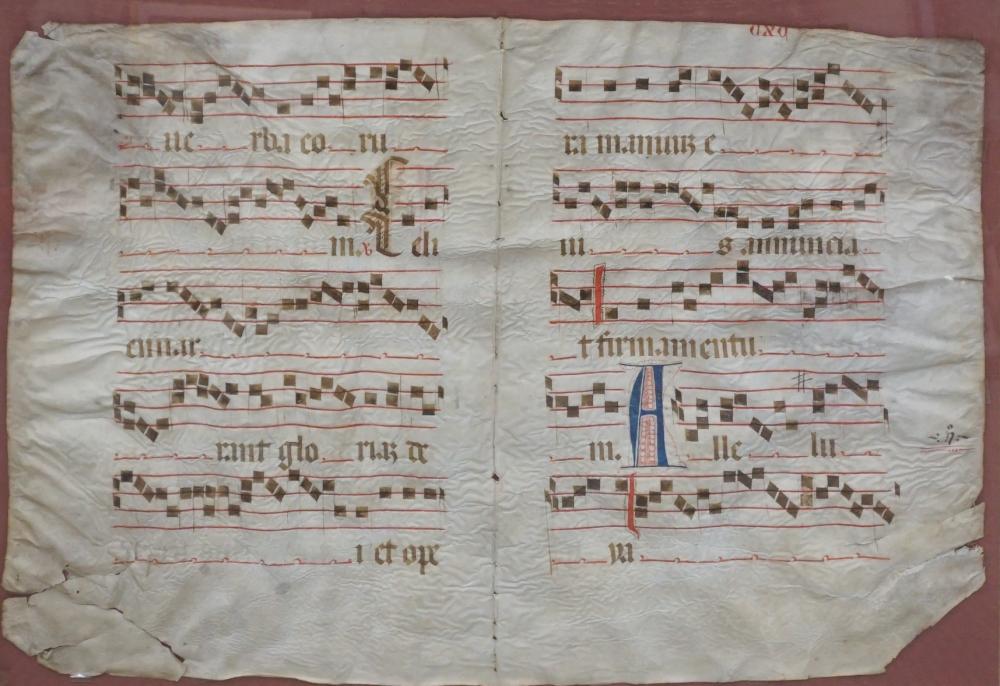 ue rba co ru
m. ℣ Celi
ennar
rant glo riaʒ de
i et ope
cxo
ra manuuʒ e
iu s annuncia
t firmamentu
m. A lle lu
ya